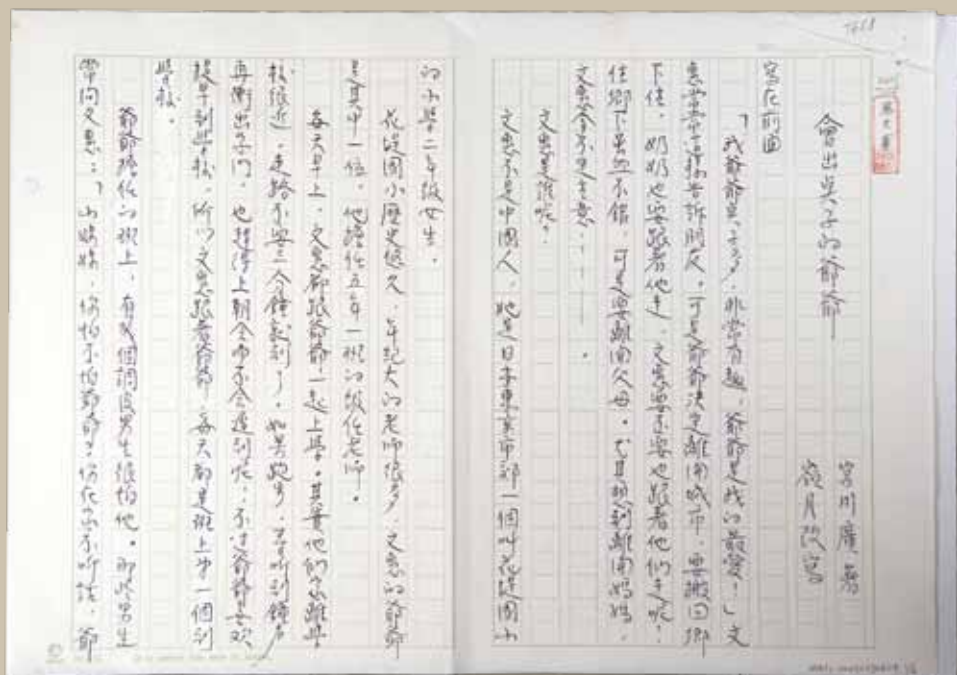 會出點子的爺爺
宮川廣著
嶺月改寫
寫在前面
「我爺爺點子多,非常有趣,爺爺是我的最愛!」文
惠常常這樣告訴朋友。可是爺爺決定離開城市,要搬回鄉
下住,奶奶也要跟著他走,文惠要不要也跟著他們走呢?
住鄉下雖然不錯,可是要離開父母,尤其想到離開媽媽,
文惠拿不定主意……。
文惠是誰呢?
文惠不是中國人,她是日本東京市郊一個叫花提國小
的小學二年級女生。
花提國小歷史悠久,年紀大的老師很多,文惠的爺爺
是其中一位,他擔任五年一班的級任老師。
每天早上,文惠都跟爺爺一起上學。其實他們家離學
校很近,走路不要三分鐘就到了。如果跑步,去聽到鐘聲
再衝出家門,也趕得上朝會而不會遲到呢。不過爺爺喜歡
提早到學校,所以文惠跟著爺爺,每天都是班上第一個到
學校。
爺爺擔任的班上,有幾個調皮男生很怕他。那些男生
常問文惠:「小妹妹,你怕不怕爺爺?你在家不聽話,爺